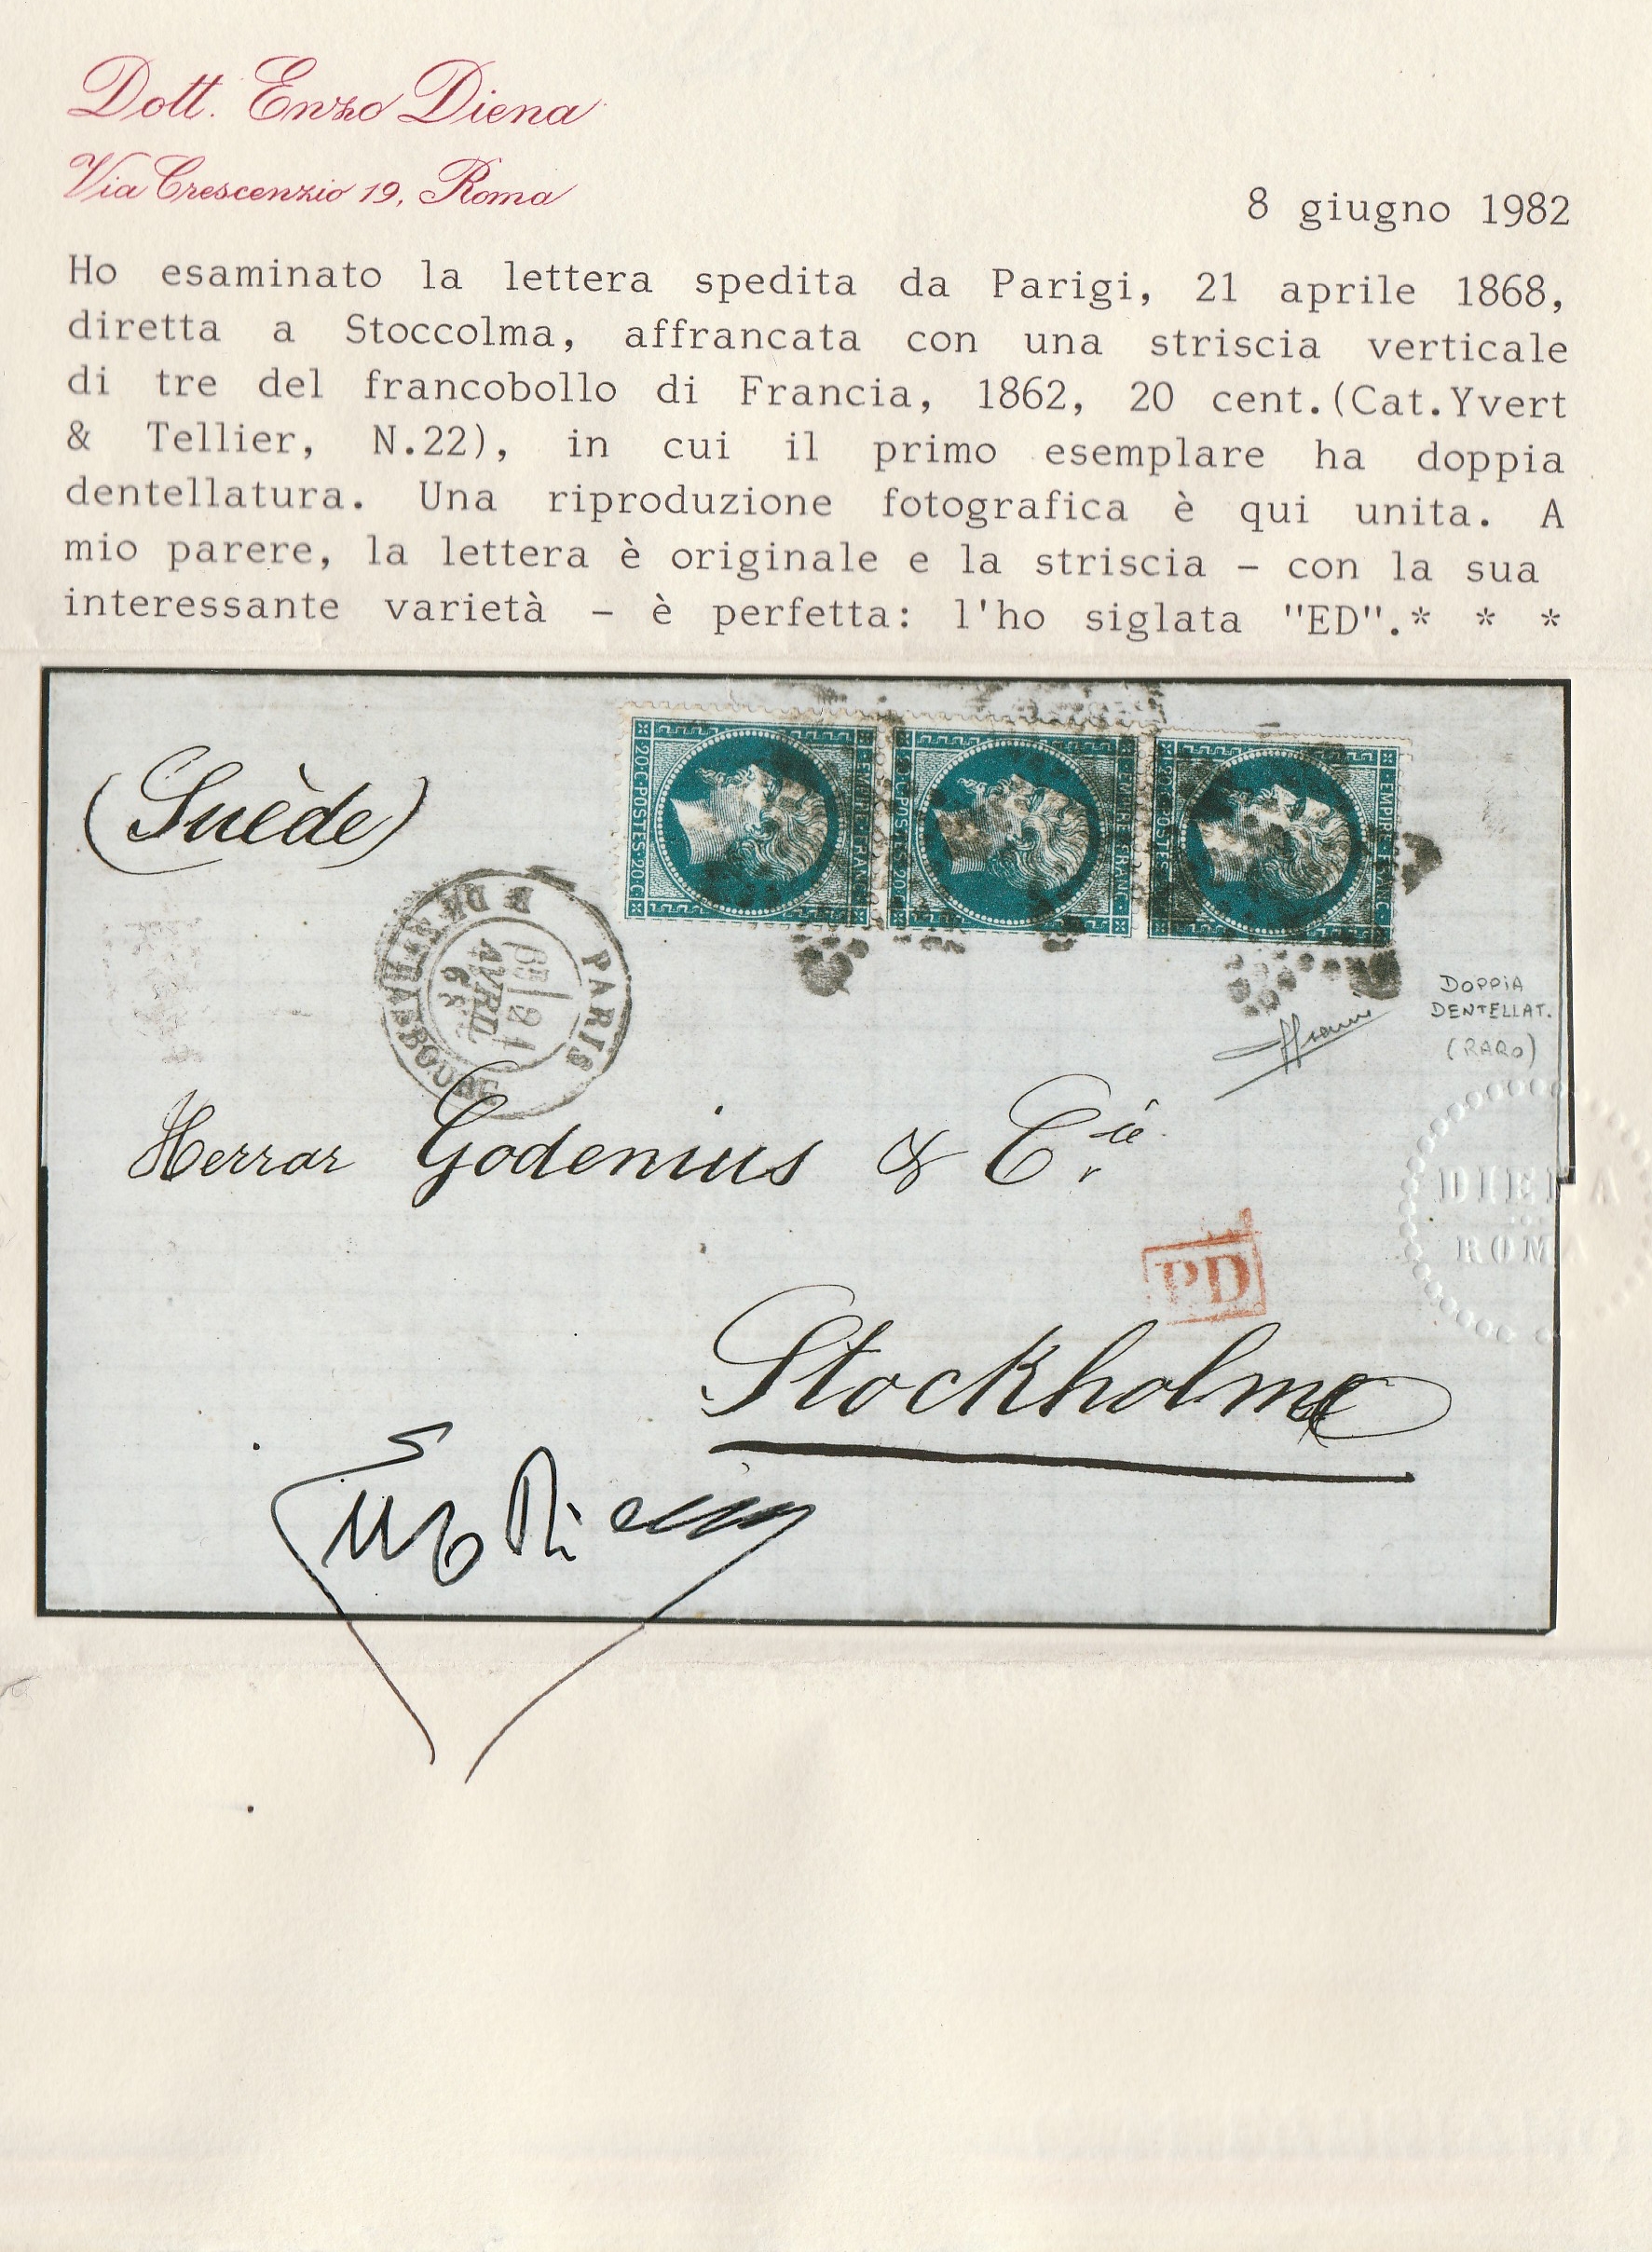 Dott. Enzo Diena
Via Crescenzio 19, Roma
8 giugno 1982
Ho esaminato la lettera spedita da Parigi, 21 aprile 1868,
diretta a Stoccolma, affrancata con una striscia verticale
di tre del francobollo di Francia, 1862, 20 cent.(Cat.Yvert
& Tellier, N.22), in cui il primo esemplare ha doppia
dentellatura. Una riproduzione fotografica è qui unita. A
mio parere, la lettera è originale e la striscia - con la sua
interessante varietà - è perfetta: l'ho siglata "ED".* * *
(Suède)
20·C·POSTES·20·C
EMPIRE·FRANC·
20·C·POSTES·20·C
EMPIRE·FRANC·
20·C·POSTES
EMPIRE·FRANC·C
PARIS
21
AVRIL
68
R. DE STRASBOURG
DOPPIA
DENTELLAT.
(RARO)
Herrar Godenius & Cie
DIENA
ROMA
PD
Stockholme
Enzo Diena